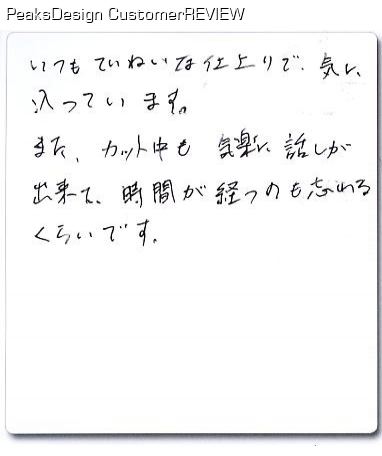 PeaksDesign CustomerREVIEW
いつもていねいな仕上りで、気に
入っています。
また、カット中も気楽に話しが
出来て、時間が経つのも忘れる
くらいです。